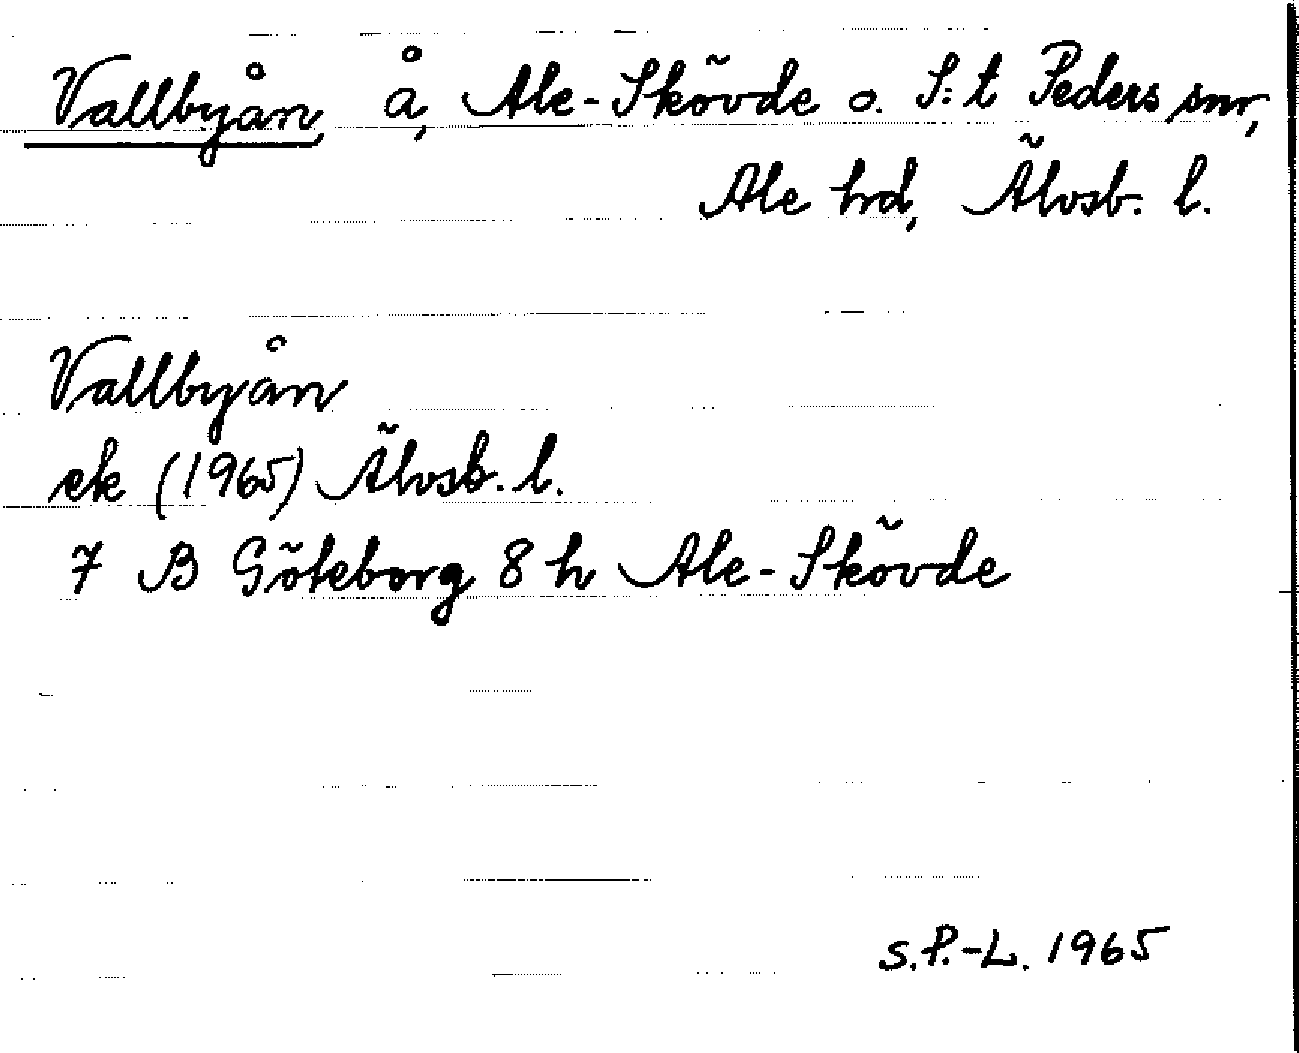 Vallbyån, å, Ale-Skövde o. S:t Peders snr,
Ale hrd, Älvsb. l.
Vallbyån
ek (1965) Älvsb. l.
7 B Göteborg 8 h Ale-Skövde
S.P.-L. 1965